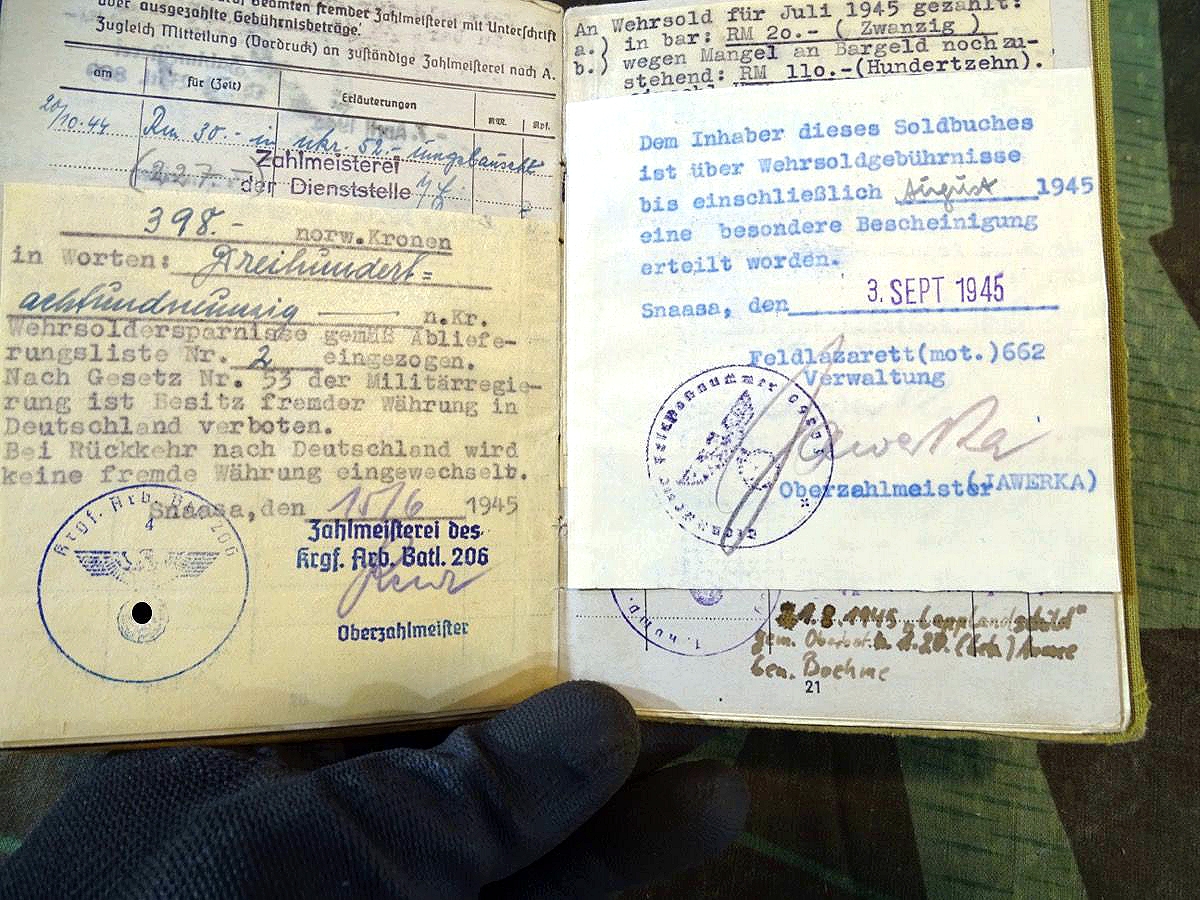 oder ausgezahlte Gebührnisbeträge.
Zugleich Mitteilung (Vordruck) an zuständige Zahlmeisterei nach A.
am
für (Zeit)
Erläuterungen
RM.
Rpf.
20/10.44 Rm 30.- in nkr. 52,-
Zahlmeisterei
(227.
der Dienststelle
398.- norw.Kronen
in Worten: Dreihundert=
achtundneunzig n.Kr.
Wehrsoldersparnisse gemäß Abliefe-
rungsliste Nr. 2 eingezogen.
Nach Gesetz Nr. 53 der Militärregie-
rung ist Besitz fremder Währung in
Deutschland verboten.
Bei Rückkehr nach Deutschland wird
keine fremde Währung eingewechselt.
Snaasa,den 15/6 1945
Krgf. Arb. Batl. 206
4
Zahlmeisterei des
Krgf. Arb. Batl. 206
Oberzahlmeister
An Wehrsold für Juli 1945 gezahlt:
a.) in bar: RM 20.- ( Zwanzig )
b.) wegen Mangel an Bargeld noch zu-
stehend: RM 110.-(Hundertzehn).
Dem Inhaber dieses Soldbuches
ist über Wehrsoldgebührnisse
bis einschließlich August 1945
eine besondere Bescheinigung
erteilt worden.
Snaasa, den 3. SEPT 1945
Feldlazarett(mot.)662
Verwaltung
Jawerka
Oberzahlmeister (JAWERKA)
1.8.1945 "Lapplandschild"
gem. Oberbef. d. 20. (Geb.) Armee
Gen. Boehme
21